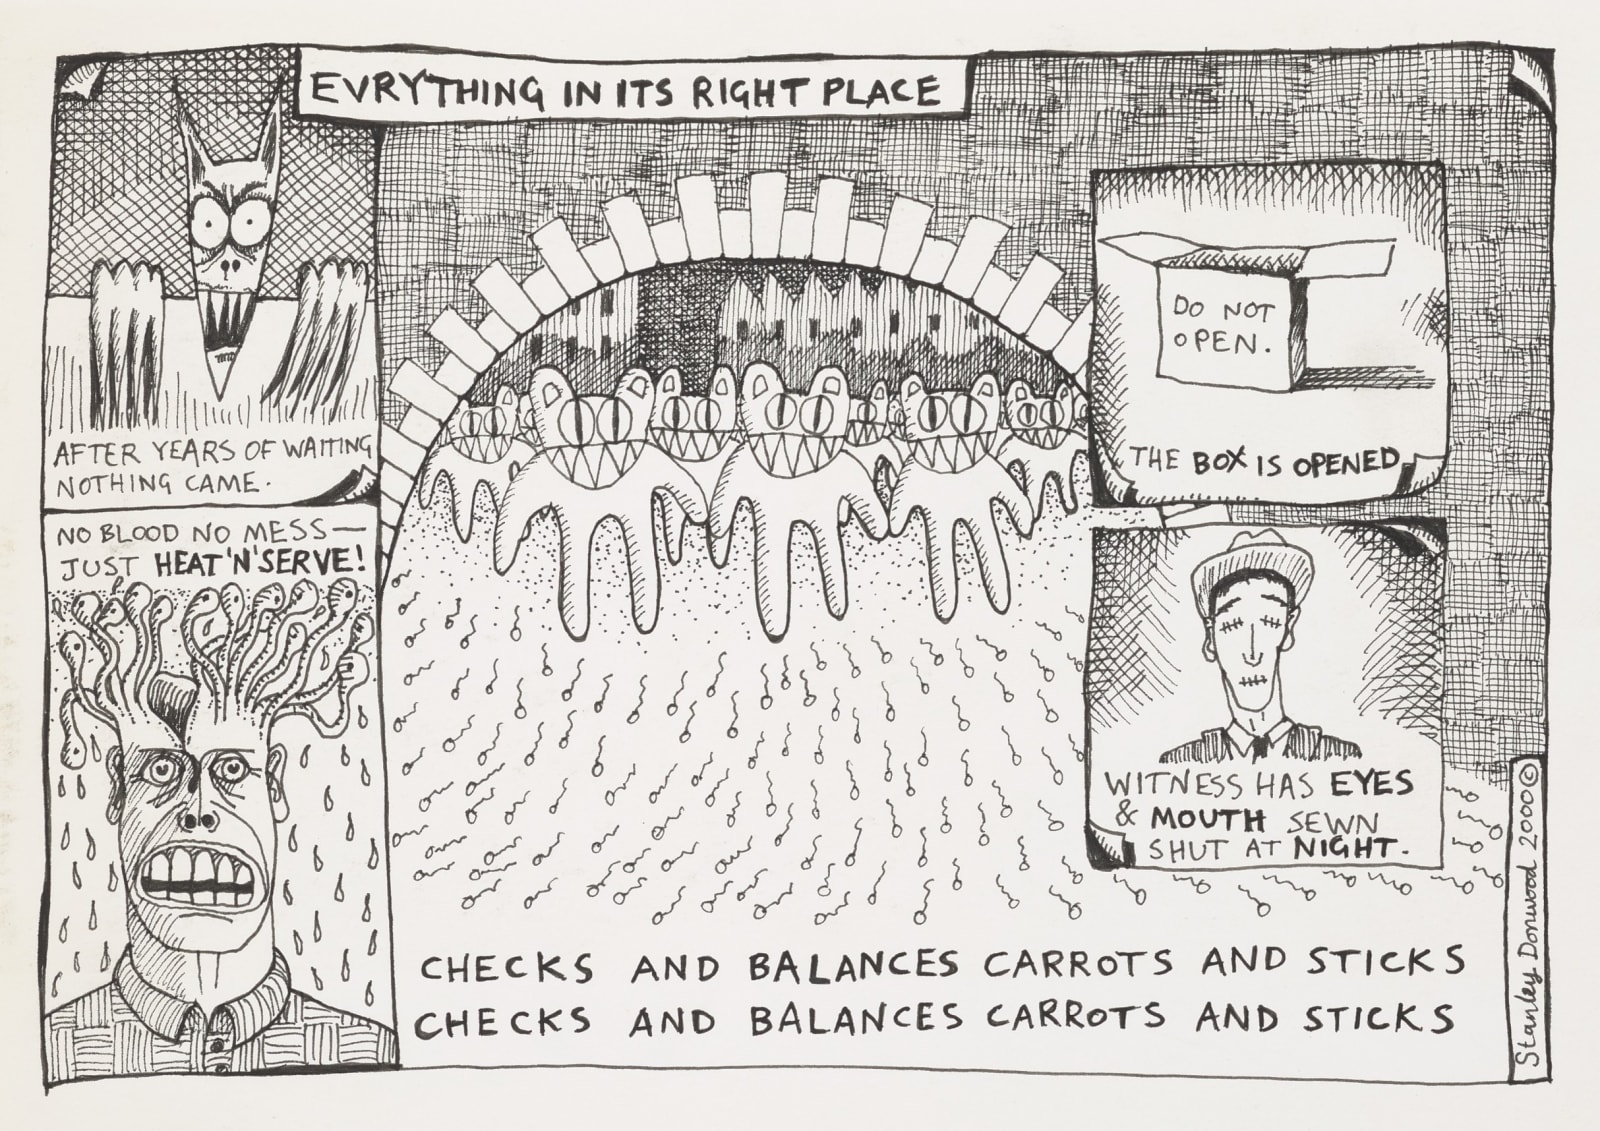 EVRYTHING IN ITS RIGHT PLACE
AFTER YEARS OF WAITING
NOTHING CAME.
NO BLOOD NO MESS—
JUST HEAT'N'SERVE!
DO NOT
OPEN.
THE BOX IS OPENED
WITNESS HAS EYES
& MOUTH SEWN
SHUT AT NIGHT.
CHECKS AND BALANCES CARROTS AND STICKS
CHECKS AND BALANCES CARROTS AND STICKS
Stanley Donwood 2000 ©